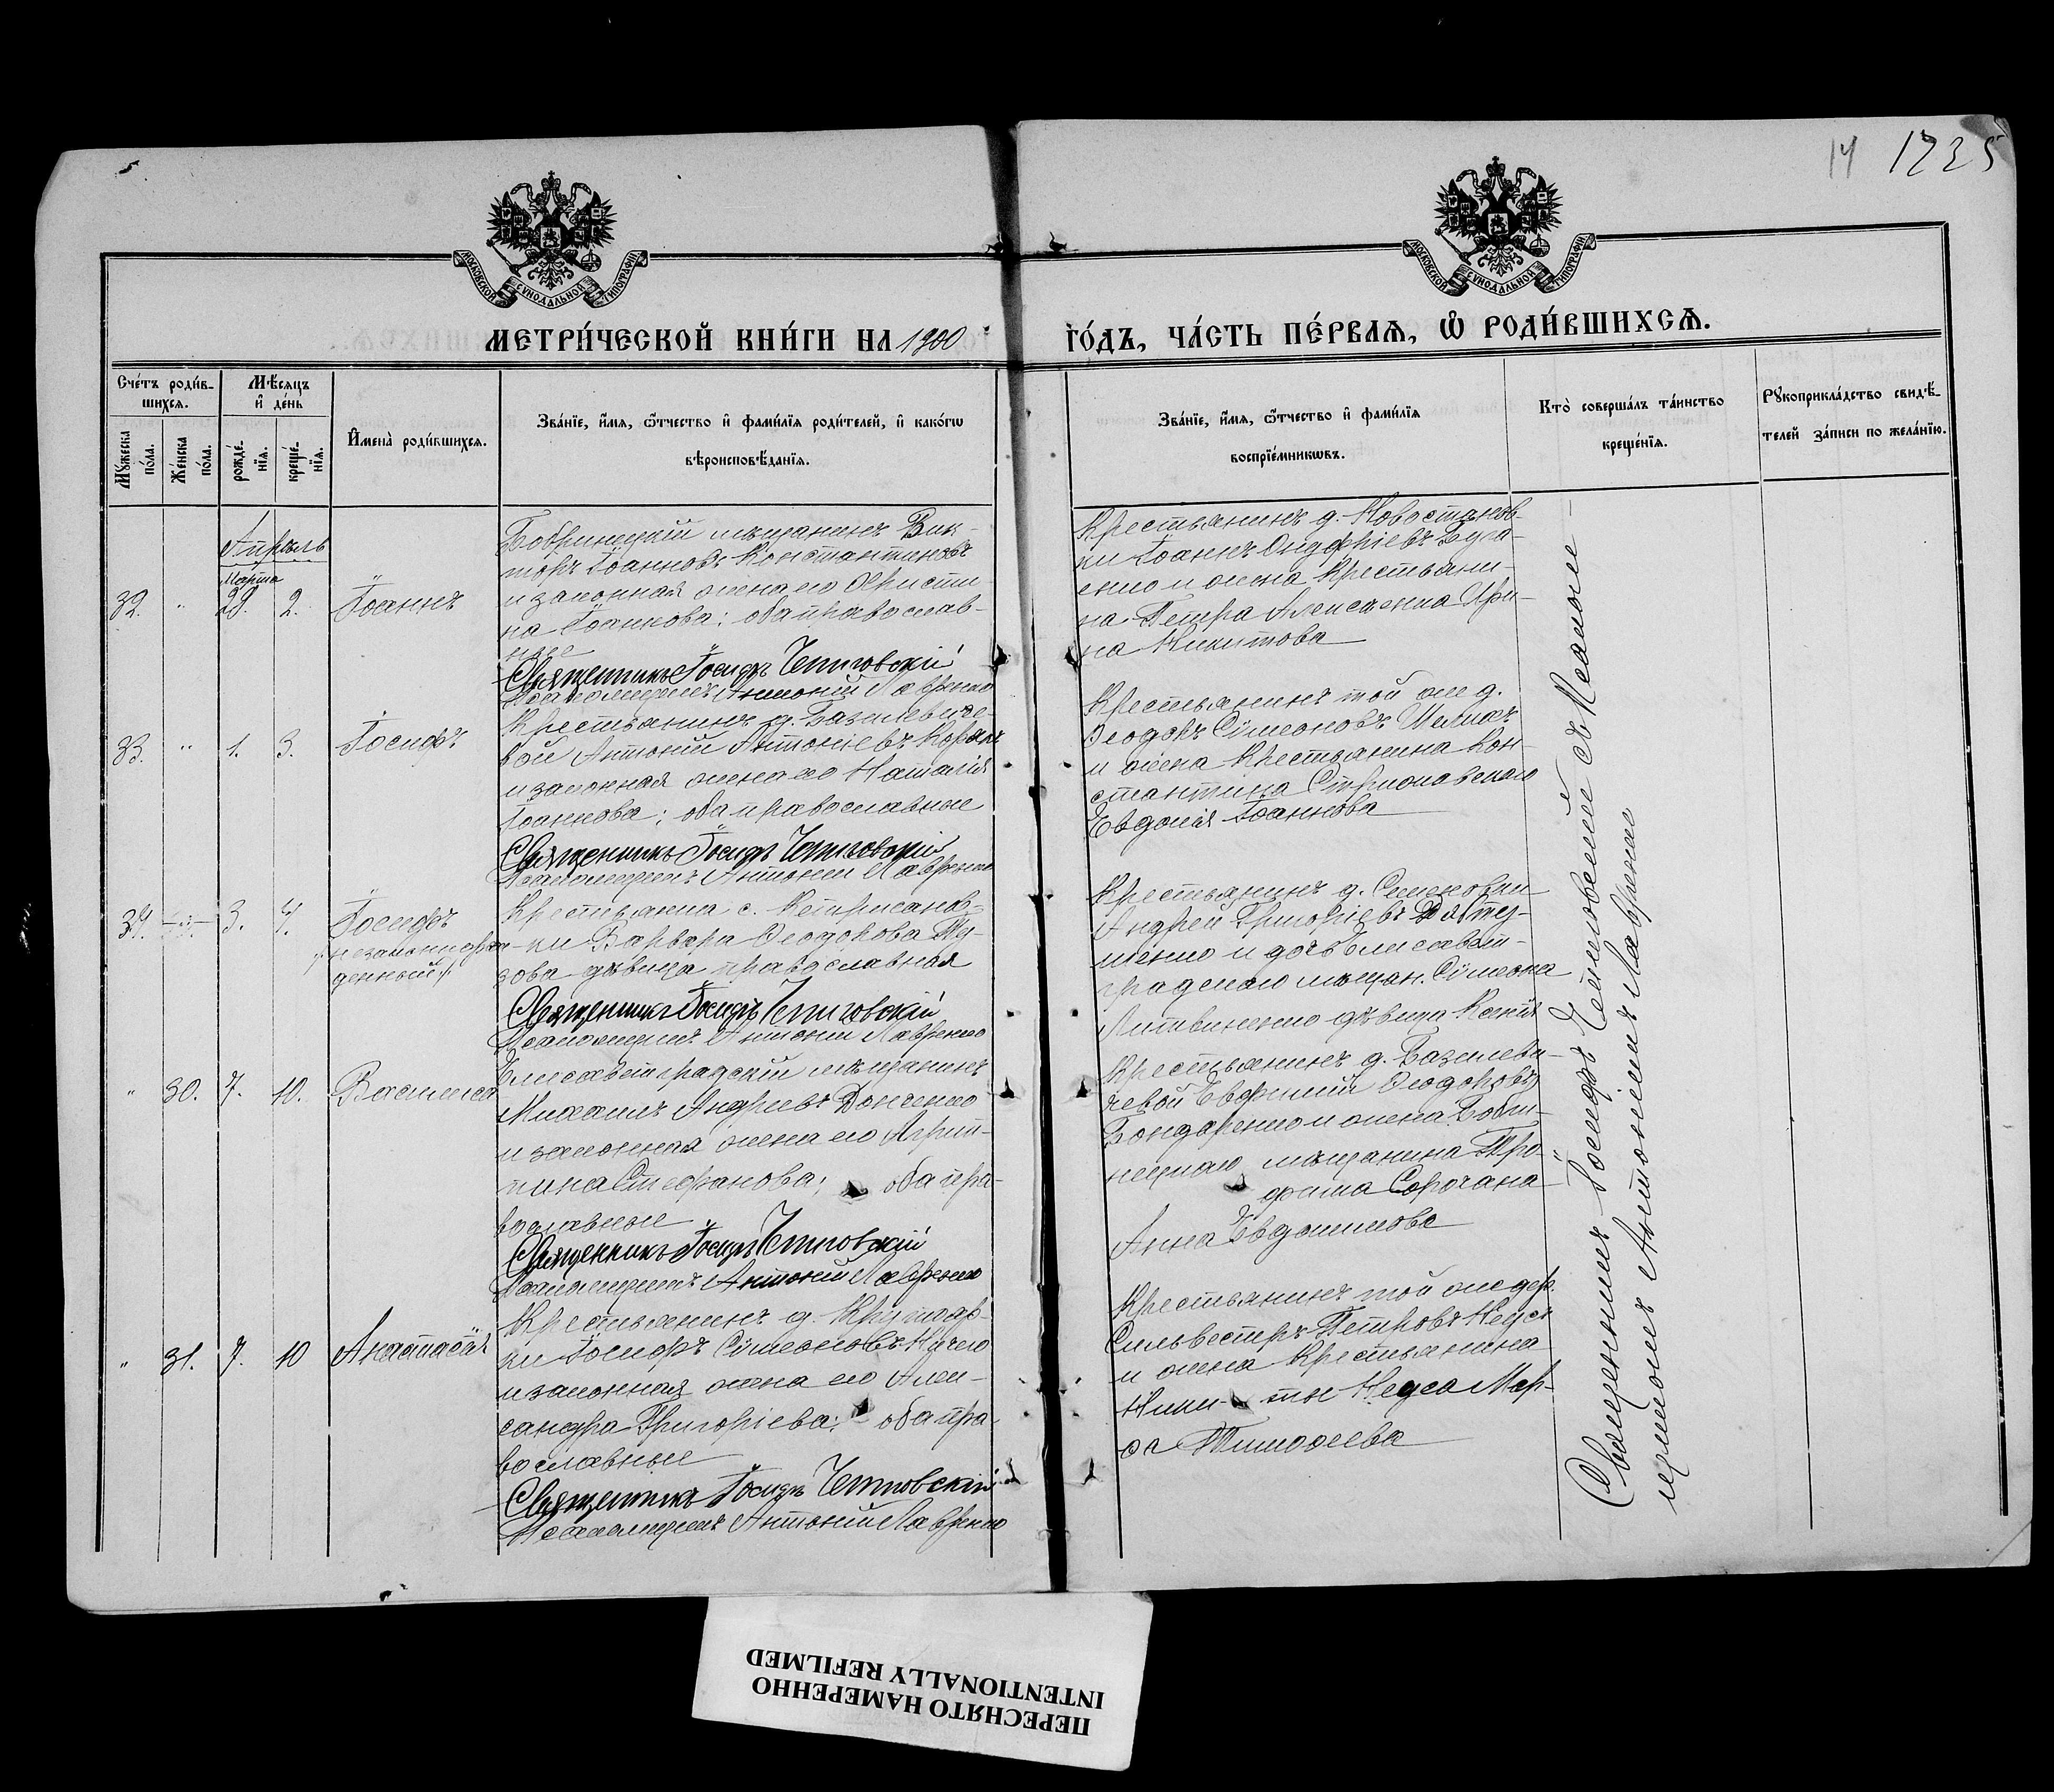 14 1225
МОСКОВСКОЙ СУНОДАЛЬНОЙ ТИПОГРАФІИ
МОСКОВСКОЙ СУНОДАЛЬНОЙ ТИПОГРАФІИ
МЕТРИ́ЧЕСКОЙ КНИ́ГИ НА 1900
ГО́ДЪ, ЧА́СТЬ ПЕ́РВАѦ, Ѡ҆ РОДИ́ВШИХСѦ.
Сче́тъ роди́в-
шихсѧ.
Мꙋ́жеска
по́ла.
Же́нска
по́ла.
Мѣ́сѧцъ
и҆ де́нь
рожде́-
нїѧ.
креще́-
нїѧ.
И҆мена̀ роди́вшихсѧ.
Зва́нїе, и҆́мѧ, ѻ҆́тчество и҆ фами́лїѧ роди́телей, и҆ како́гѡ
вѣроисповѣ́данїѧ.
Зва́нїе, и҆́мѧ, ѻ҆́тчество и҆ фами́лїѧ
воспрїе́мникѡвъ.
Кто̀ соверша́лъ та́инство
креще́нїѧ.
Рꙋкоприкла́дство свидѣ́-
телей за́писи по жела́нїю.
Апрѣль
Марта
32. " 29. 2. Іоаннъ
Бобринецкій мѣщанинъ Вик-
торъ Іоанновъ Константиновъ
и законная жена его Христи
на Іоаннова; оба православ-
ные
Священникъ Іосифъ
Псаломщикъ Антоній Лавренко
Крестьянинъ д. Новостанков-
ки Іоаннъ Онуфріевъ
енко и жена крестьяни-
на Петра Алексѣенка Ири-
на Никитова
33. " 1. 3. Іосифъ
Крестьянинъ д. Базилевиче-
вой Антоній Антоніевъ
и законная жена его Наталія
Іоаннова; оба православные
Священникъ Іосифъ
Псаломщикъ Антоній Лавренко
Крестьянинъ той же д.
Ѳеодоръ Сѵмеоновъ
и жена крестьянина Кон-
стантина Стрижавскаго
Евдокія Іоаннова
34. 3. 4. Іосифъ
незаконнорож
денный
Крестьянка с. Кетрисанов-
ки Варвара Ѳеодорова
зова дѣвица православная
Священникъ Іосифъ
Псаломщикъ Антоній Лавренко
Крестьянинъ д.
Андрей Григоріевъ
шенко и дочь Елисавет-
градскаго мѣщан. Сѵмеона
Литвиненко дѣвица Ксенія
" 30. 7. 10. Василиса
Елисаветградскій мѣщанинъ
Михаилъ Андреевъ Донченко
и законная жена его Агрип-
пина Стефанова; оба пра-
вославные
Священникъ Іосифъ
Псаломщикъ Антоній Лавренко
Крестьянинъ д. Базилеви-
чевой Евфимій Ѳеодоровъ
Бондаренко и жена Бобри-
нецкаго мѣщанина Тро-
фима Сорочана
Анна Евдокимова
" 31. 7. 10 Анастасія
Крестьянинъ д.
ки Іосифъ Сѵмеоновъ
и законная жена его Алек-
сандра Григоріева; оба пра-
вославные
Священникъ Іосифъ
Псаломщикъ Антоній Лавренко
Крестьянинъ той же дер.
Сильвестръ Петровъ
и жена крестьянина
Ники-ты Мар-
ѳа Тимоѳеева
Священникъ Іосифъ съ Псалом-
щикомъ Антоніемъ Лавренко
ПЕРЕСНЯТО НАМЕРЕННО
INTENTIONALLY REFILMED